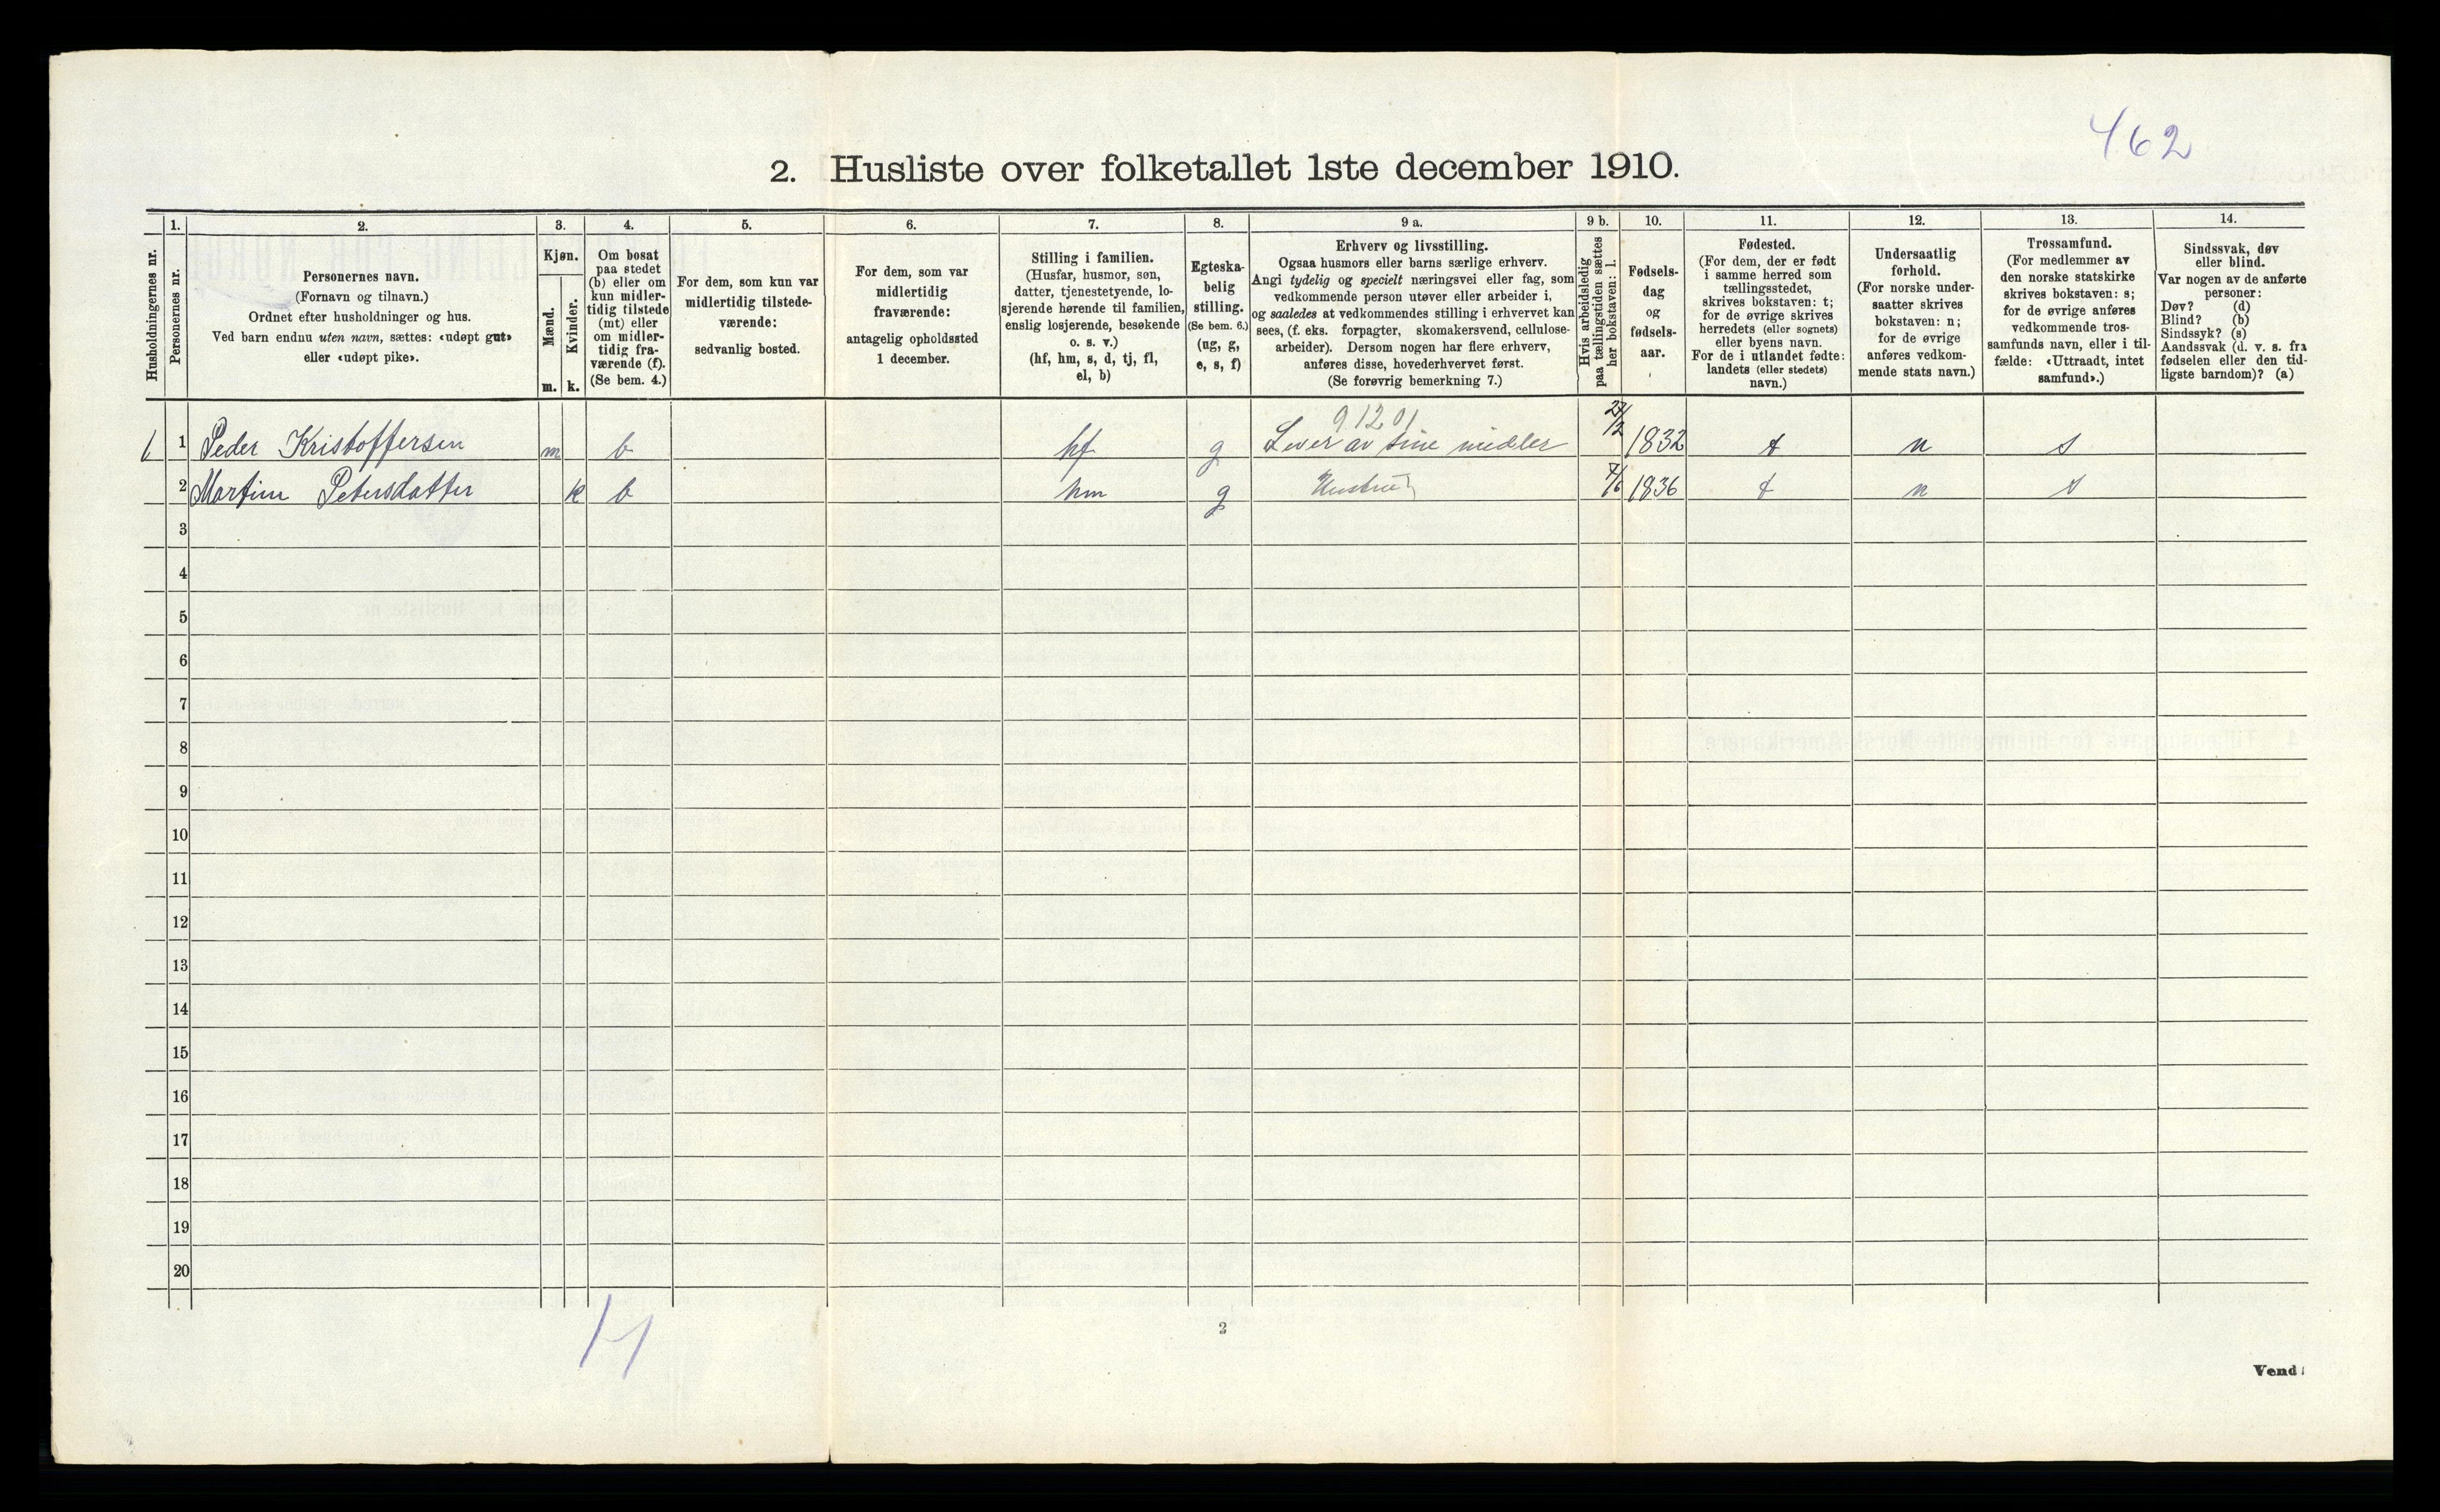 462
2. Husliste over folketallet 1ste december 1910.
Husholdningernes nr.
1. Personernes nr.
2. Personernes navn. (Fornavn og tilnavn.) Ordnet efter husholdninger og hus. Ved barn endnu uten navn, sættes: «udøpt gut» eller «udøpt pike».
3. Kjøn. Mænd. m. Kvinder. k.
4. Om bosat paa stedet (b) eller om kun midlertidig tilstede (mt) eller om midlertidig fraværende (f). (Se bem. 4.)
5. For dem, som kun var midlertidig tilstedeværende: sedvanlig bosted.
6. For dem, som var midlertidig fraværende: antagelig opholdssted 1 december.
7. Stilling i familien. (Husfar, husmor, søn, datter, tjenestetyende, losjerende hørende til familien, enslig losjerende, besøkende o. s. v.) (hf, hm, s, d, tj, fl, el, b)
8. Egteskabelig stilling. (Se bem. 6.) (ug, g, e, s, f)
9 a. Erhverv og livsstilling. Ogsaa husmors eller barns særlige erhverv. Angi tydelig og specielt næringsvei eller fag, som vedkommende person utøver eller arbeider i, og saaledes at vedkommendes stilling i erhvervet kan sees, (f. eks. forpagter, skomakersvend, cellulosearbeider). Dersom nogen har flere erhverv, anføres disse, hovederhvervet først. (Se forøvrig bemerkning 7.)
9 b. Hvis arbeidsledig paa tællingstiden sættes her bokstaven: l.
10. Fødselsdag og fødselsaar.
11. Fødested. (For dem, der er født i samme herred som tællingsstedet, skrives bokstaven: t; for de øvrige skrives herredets (eller sognets) eller byens navn. For de i utlandet fødte: landets (eller stedets) navn.)
12. Undersaatlig forhold. (For norske undersaatter skrives bokstaven: n; for de øvrige anføres vedkommende stats navn.)
13. Trossamfund. (For medlemmer av den norske statskirke skrives bokstaven: s; for de øvrige anføres vedkommende trossamfunds navn, eller i tilfælde: «Uttraadt, intet samfund».)
14. Sindssvak, døv eller blind. Var nogen av de anførte personer: Døv? (d) Blind? (b) Sindssyk? (s) Aandssvak (d. v. s. fra fødselen eller den tidligste barndom)? (a)
91201
1 1 Peder Kristoffersen m b hf g Lever av sine midler 27/2 1832 t n s
2 Martine Petersdatter k b hm g Hustru 7/6 1836 t n s
3
4
5
6
7
8
9
10
11
12
13
14
15
16
17
18
19
20
2
Vend!